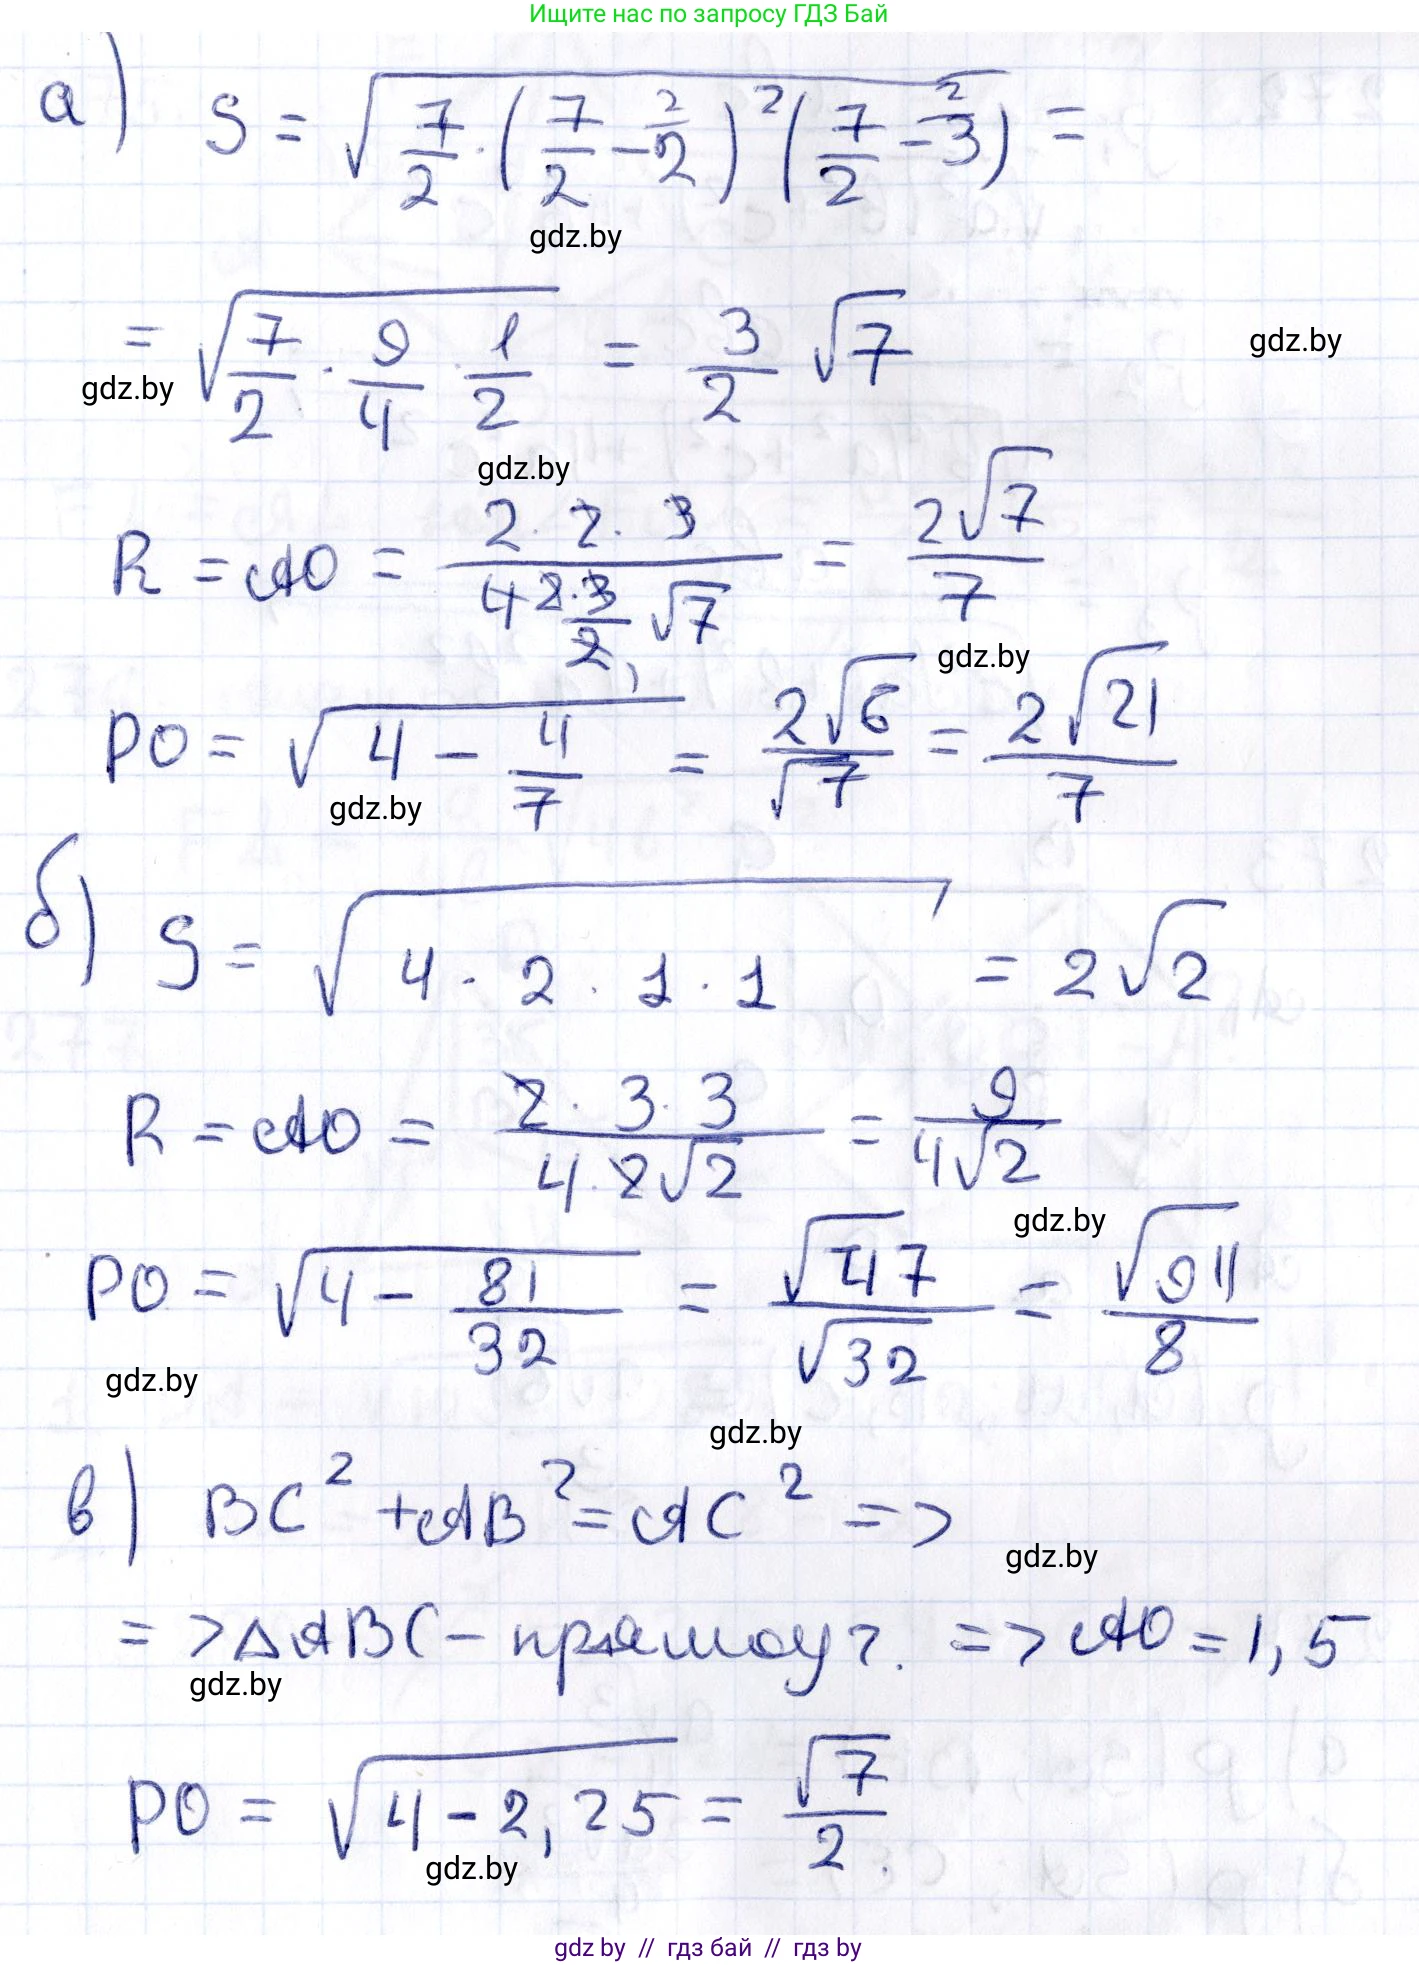 Ищите нас по запросу ГДЗ Бай
а) S = √(7/2 · (7/2 − 2)² (7/2 − 3)) =
gdz.by
= √(7/2 · 9/4 · 1/2) = 3/2 √7
gdz.by
gdz.by
gdz.by
R = AO = (2 · 2 · 3)/(4 · 3/2 √7) = 2√7/7
gdz.by
PO = √(4 − 4/7) = 2√6/√7 = 2√21/7
gdz.by
б) S = √(4 · 2 · 1 · 1) = 2√2
R = AO = (2 · 3 · 3)/(4 · 2√2) = 9/(4√2)
gdz.by
PO = √(4 − 81/32) = √47/√32 = √94/8
gdz.by
gdz.by
в) BC² + AB² = AC² =>
gdz.by
=> ΔABC – прямоуг. => AO = 1,5
gdz.by
PO = √(4 − 2,25) = √7/2.
gdz.by
gdz by // гдз бай // гдз by